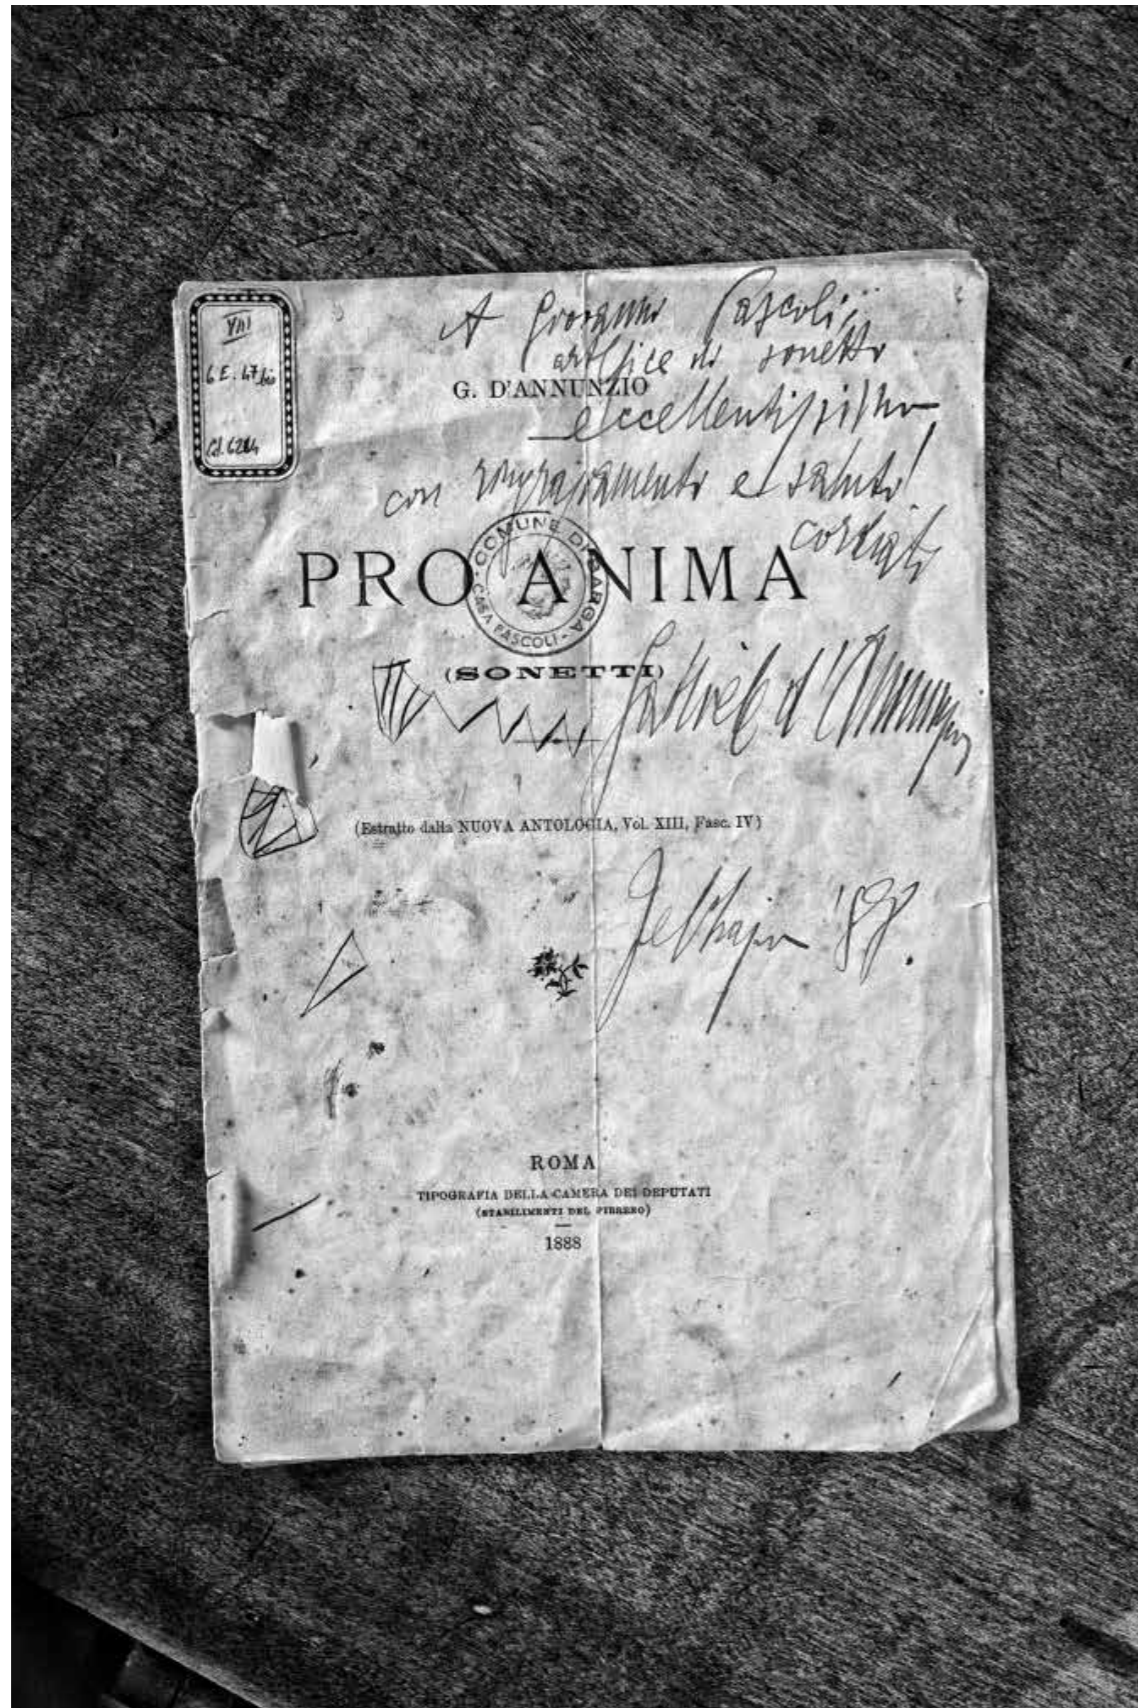 VIII
6 E. 47 bis
A Giovanni Pascoli,
artefice di sonetti
G. D'ANNUNZIO
eccellentissimo
con ringraziamento e saluto
cordiale
PRO ANIMA
COMUNE DI BARGA
CASA PASCOLI
(SONETTI)
Gabriele d'Annunzio
(Estratto dalla NUOVA ANTOLOGIA, Vol. XIII, Fasc. IV)
ROMA
TIPOGRAFIA DELLA CAMERA DEI DEPUTATI
(STABILIMENTI DEL FIBRENO)
1888